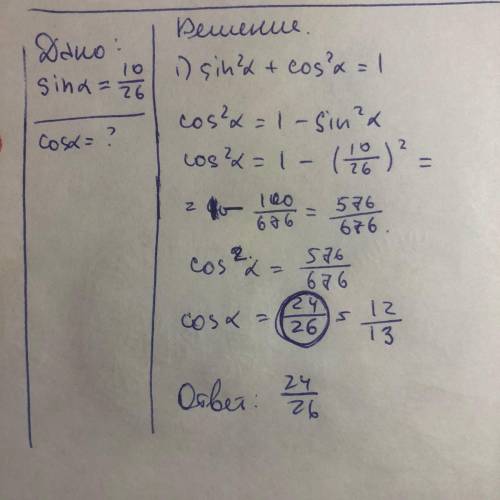 Дано:
sinα = 10/26
cosα = ?
Решение.
1) sin²α + cos²α = 1
cos²α = 1 − sin²α
cos²α = 1 − (10/26)² =
= − 100/676 = 576/676.
cos²α = 576/676
cosα = 24/26 = 12/13
Ответ: 24/26